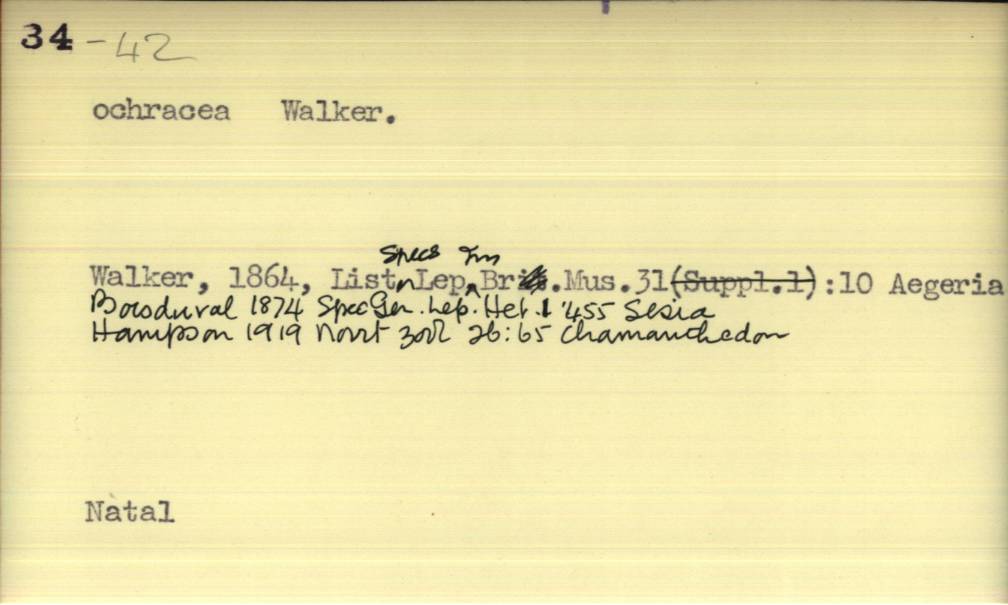 34 - 42
ochracea Walker.
Specs Ins
Walker, 1864, List Lep Br. Mus.31(Suppl.1):10 Aegeria
Boisduval 1874 Spec Gen. Lep. Het. 1 :455 Sesia
Hampson 1919 Novit Zool 26:65 Chamanthedon
Natal